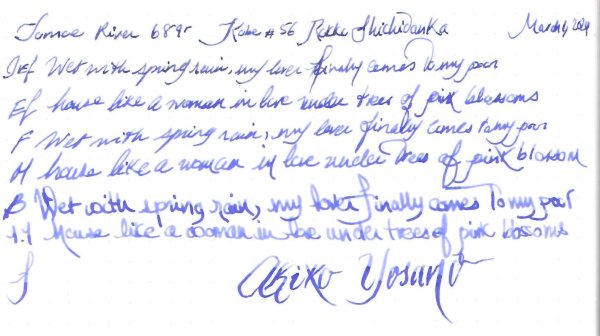 Tomoe River 68gr Kobe #56 Rokko Shichidanka March 4, 2024
Uef Wet with spring rain, my lover finally comes to my poor
Ef house like a woman in love under trees of pink blossoms
F Wet with spring rain, my lover finally comes to my poor
M house like a woman in love under trees of pink blossom
B Wet with spring rain, my lover finally comes to my poor
1.1 House like a woman in love under trees of pink blossoms
J Akiko Yosano